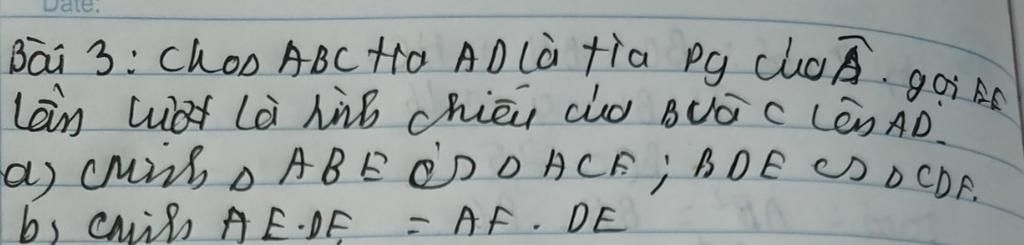 Date:
Bài 3: Cho △ ABC tia AD là tia pg của Â. gọi E,F
lần lượt là hình chiếu của B và C lên AD.
a) CMinh △ ABE ∽ △ ACF; BDE ∽ △ CDF.
b) cminh AE.DF = AF. DE